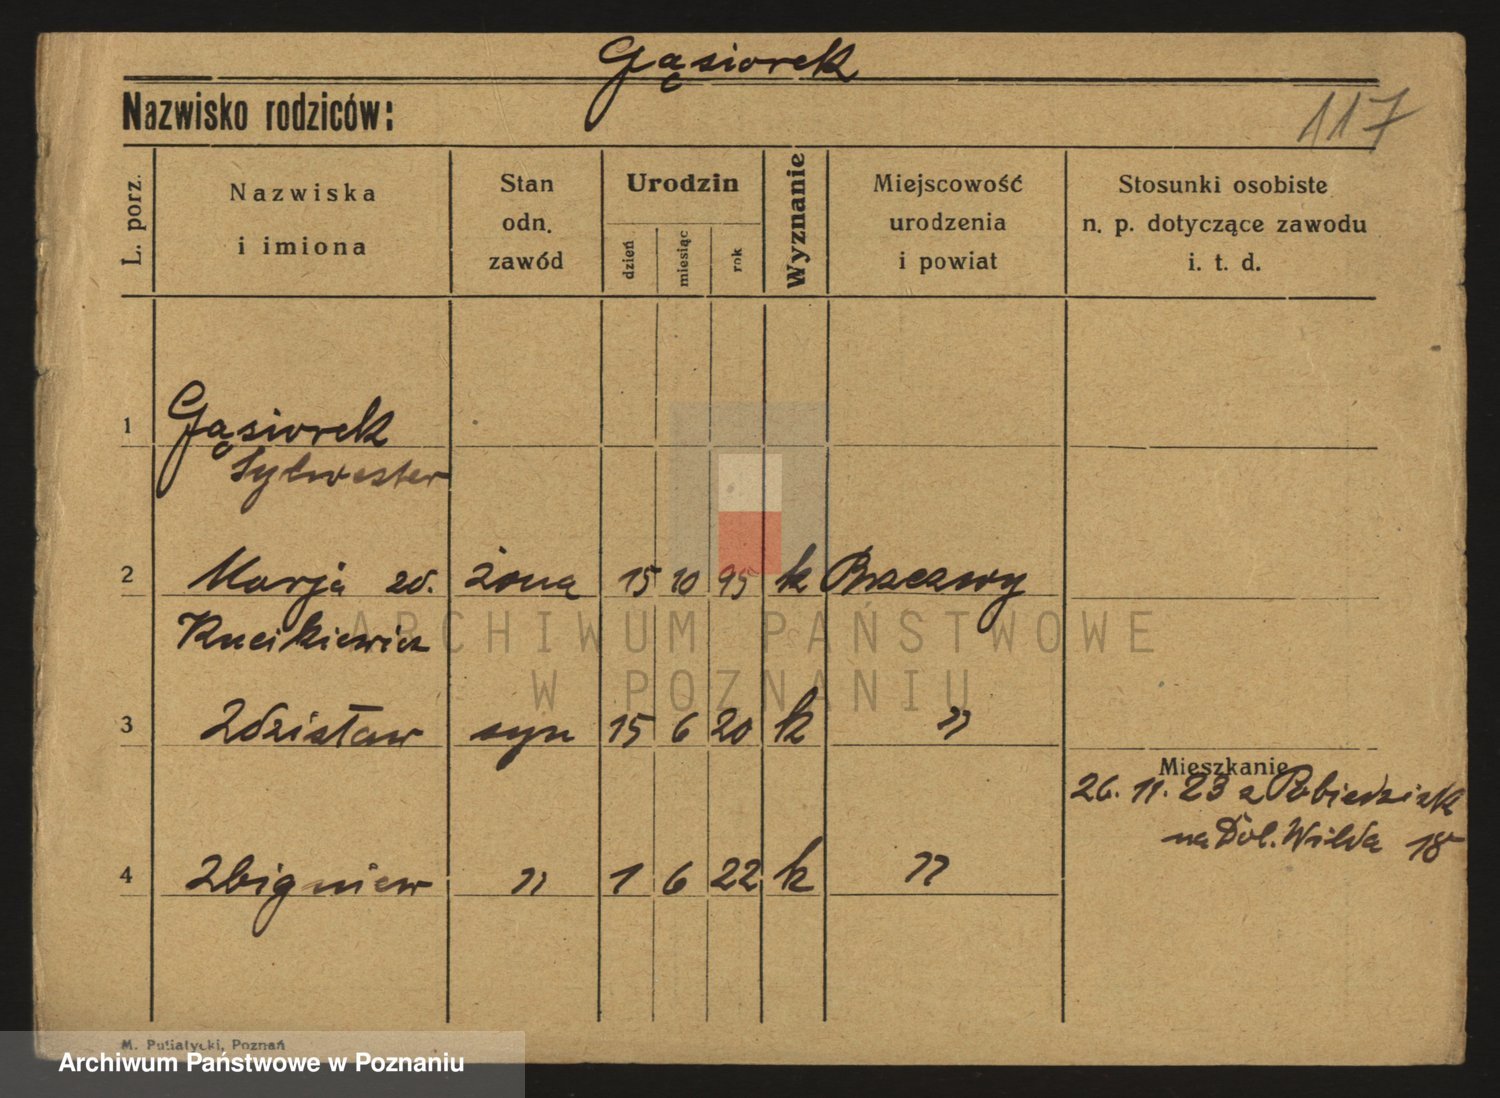 Gąsiorek
Nazwisko rodziców:
117
L. porz.
Nazwiska
i imiona
Stan
odn.
zawód
Urodzin
dzień
miesiąc
rok
Wyznanie
Miejscowość
urodzenia
i powiat
Stosunki osobiste
n. p. dotyczące zawodu
i. t. d.
1 Gąsiorek
Sylwester
2 Marja żona 15 10 95 k
ARCHIWUM PAŃSTWOWE
W POZNANIU
3 Zdzisław syn 15 6 20 k "
Mieszkanie
26. 11. 23 z Pobiedzisk
na Dol. Wilda 18
4 Zbigniew " 1 6 22 k "
M. Putiatycki, Poznań
Archiwum Państwowe w Poznaniu